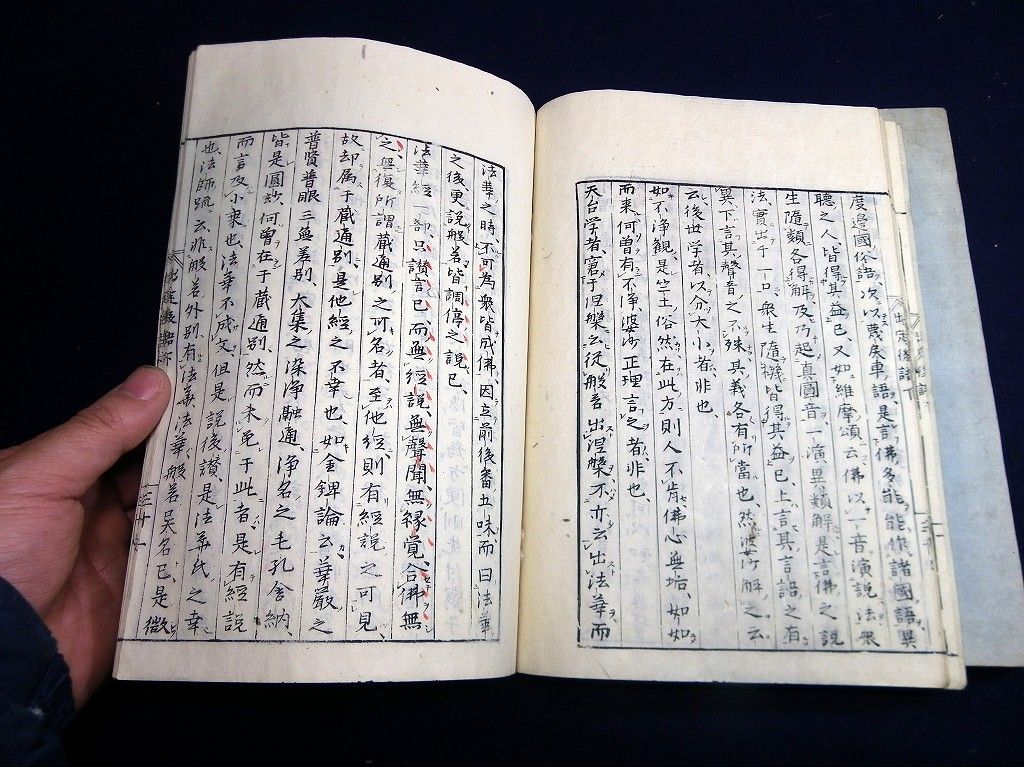 度邊國俗語、次以蔑戾車語、是言佛多能、能作諸國語、異
聽之人、皆得其益已、又如維摩頌、云佛以一音演說法、眾
生隨類各得解、及乃起真圓音、一演異類解、是言佛之說
法、實出于一口、衆生隨機皆得其益已、上言其言語之有
異、下言其聲音之不殊、其義各有所當也、然婆沙解之云
云、後世学者、以分大小者、非也
如不浄観、是竺土俗然、在此方則人不肯、佛心無垢、如如
而来、何曽有不浄、婆沙正理言之者、非也、
天台学者、窘于涅槃云従般若出涅槃、不亦云出法華、而
法華之時、不可為衆皆成佛、因立前後番五味、而曰法華
之後更說般若、皆調停之說已、
法華經一部、只讃言已、而無經說、無聲聞、無緣覺、合佛無
之、無復所謂蔵通別之可名者、至他經則有經說之可見、
故却属于蔵通別、是他經之不幸也、如金錍論云、華嚴之
普賢普眼三無差別、大集之染浄融通、浄名之毛孔含納、
皆是圓妙、何曽在于蔵通別、然而未免于此者、是有經說
而言及小乗也、法華不成文、但是說後讃、是法華氏之幸
也、法師
云、非般若外別有法華、法華般若異名已、是微
出定後語